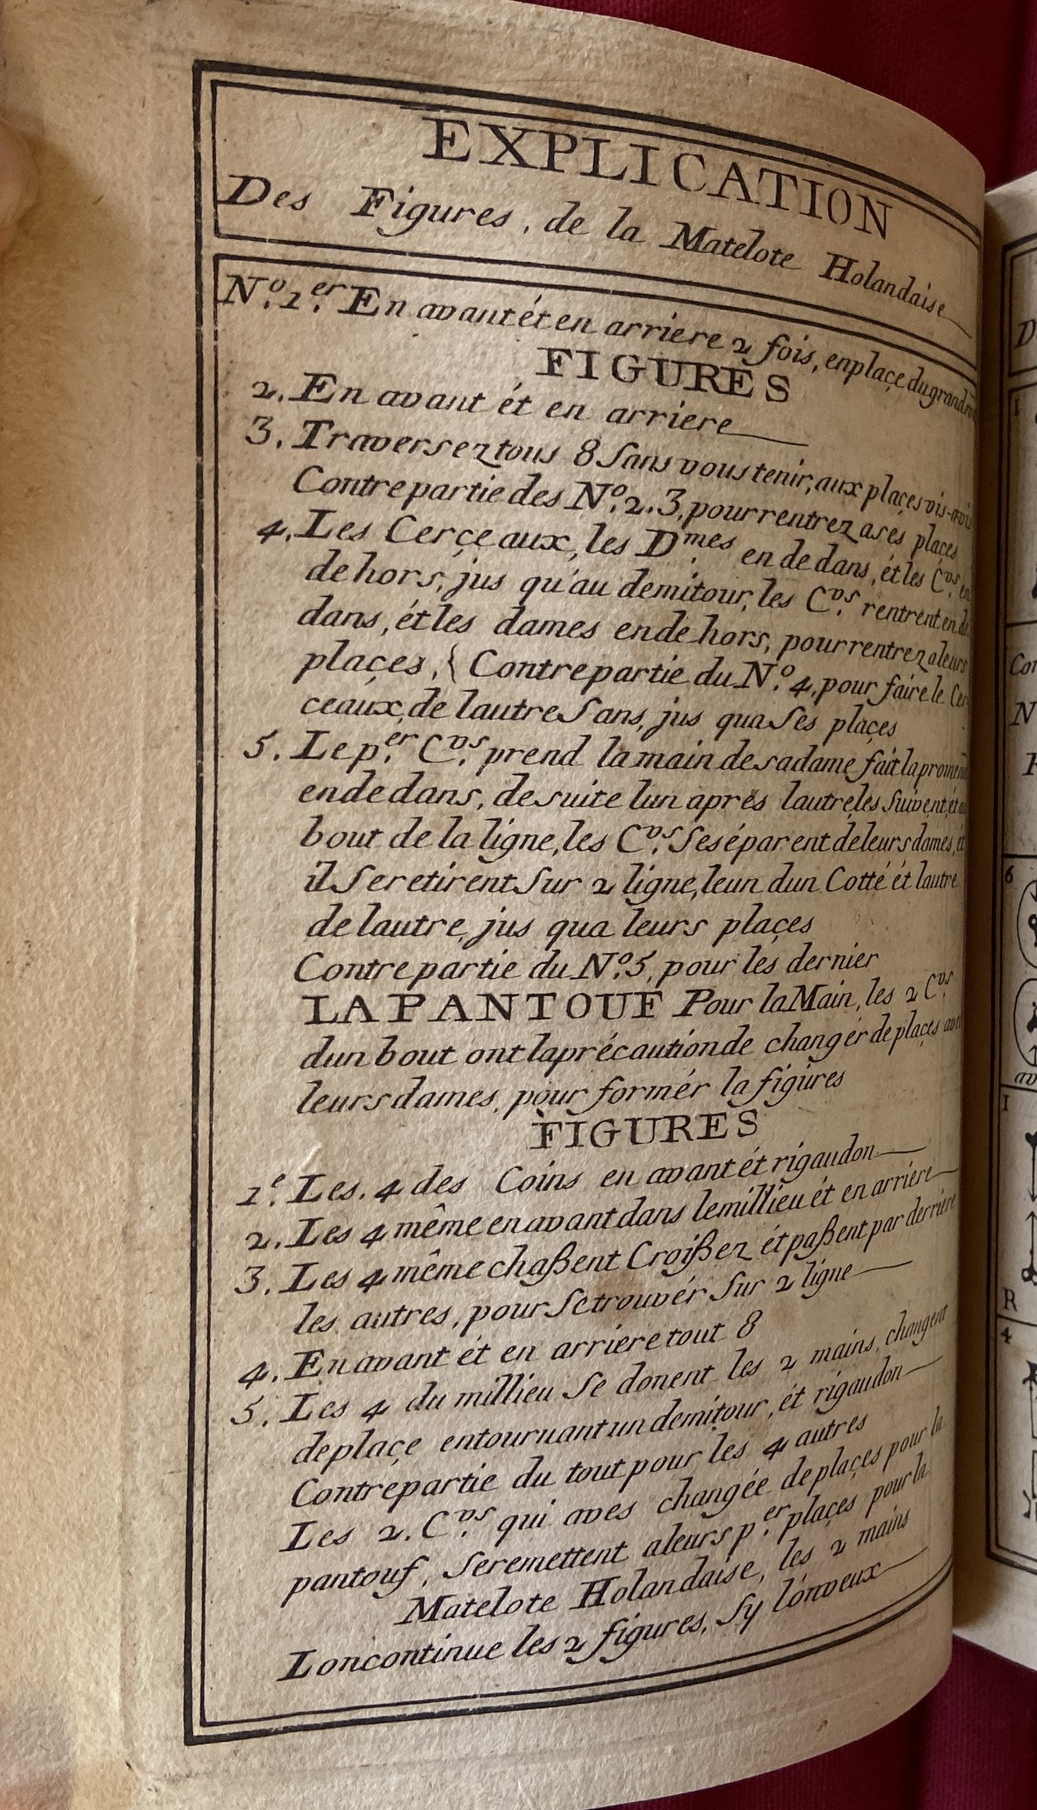 EXPLICATION
Des Figures, de la Matelote Holandaise
N.º 1.er En avant ét en arriere 2 fois, en plaçe du grand
FIGURES
2. En avant ét en arriere
3. Traversez tous 8 sans vous tenir, aux places vis-avis
Contrepartie des N.º 2.3, pour rentrez a sés plaçes
4. Les Cerçeaux, les D.mes en de dans, ét les C.vs en
de hors, jus qu'au demitour, les C.vs rentrent en de
dans, ét les dames en de hors, pour rentrez a leurs
plaçes, { Contrepartie du N.º 4, pour faire le Cer
ceaux, de lautre Sans, jus qua Ses plaçes
5. Le p.er C.vs prend la main de sa dame fait la promen
en de dans, de suite lun aprés lautre, les Suivent, ét au
bout de la ligne, les C.vs Se séparent de leurs dames, ét
il Se retirent Sur 2 ligne, leun dun Cotté ét lautre
de lautre, jus qua leurs plaçes
Contrepartie du N.º 5, pour lés dernier
LA PANTOUF Pour la Main, les 2 C.vs
dun bout ont la précaution de changér de plaçes avec
leurs dames, pour formér la figures
FIGURES
1.e Les. 4 des Coins en avant ét rigaudon
2. Les 4 même en avant dans le millieu ét en arriere
3. Les 4 même chaßent Croißez ét paßent par derriere
les autres, pour Se trouvér Sur 2 ligne
4. En avant ét en arriere tout 8
5. Les 4 du millieu Se donent les 2 mains, changent
de plaçe en tournant un demitour, ét rigaudon
Contrépartie du tout pour les 4 autres
Les 2. C.vs qui aves changée de plaçes pour la
pantouf, Se remettent a leurs p.er plaçes pour la
Matelote Holandaise, les 2 mains
Lon continue les 2 figures, Sy lón veux
D
1
Con
N
6
1
R
4